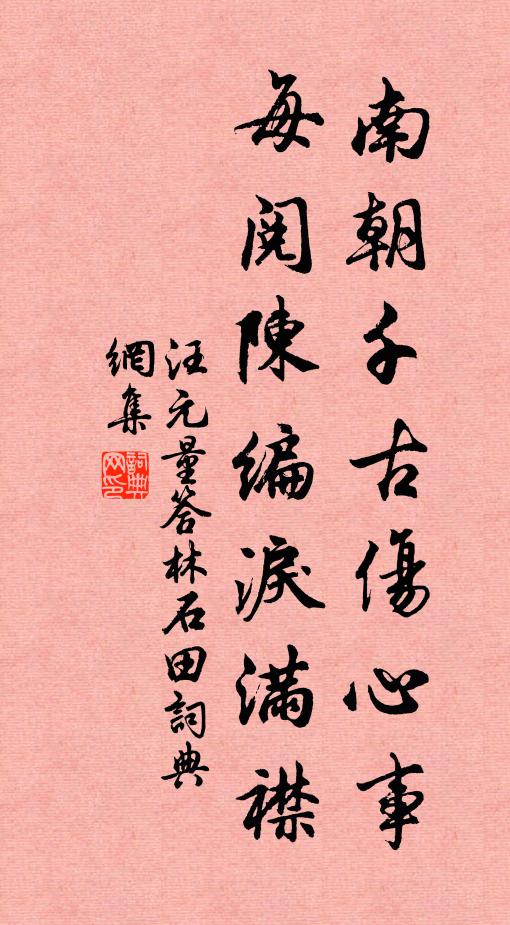 南朝千古傷心事
每閱陳編淚滿襟
汪元量答林石田詞典
網集
詞典
网印